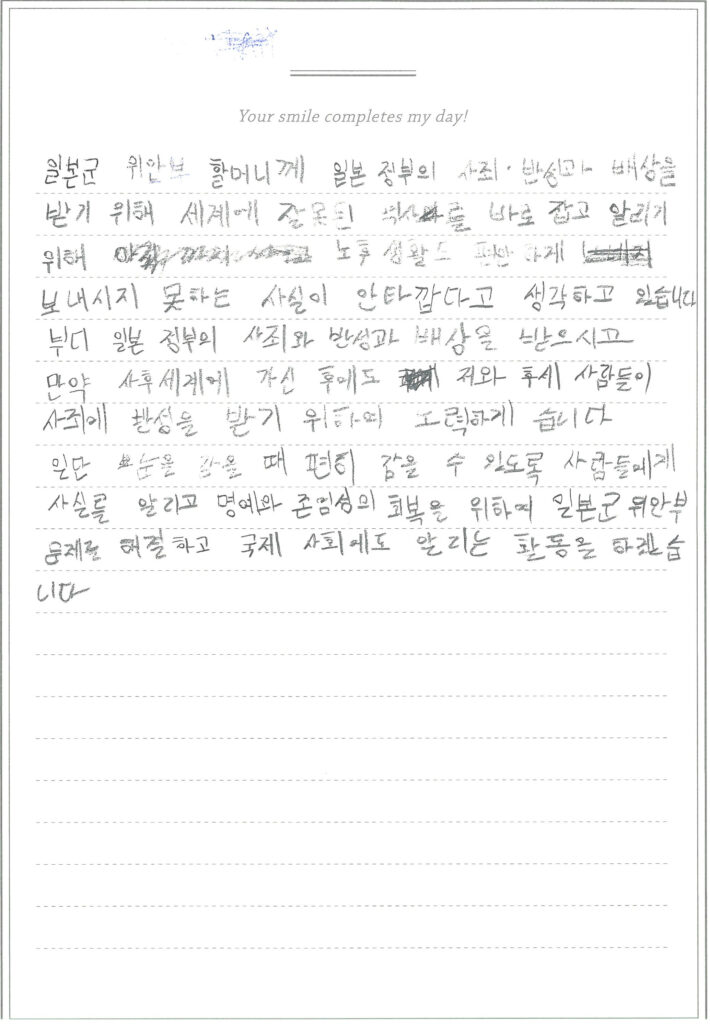 Your smile completes my day!
일본군 위안보 할머니께 일본 정부의 사죄·반성과 배상을
받기 위해 세계에 잘못된 역사를 바로 잡고 알리기
위해 노후 생활도 편안하게
보내시지 못하는 사실이 안타깝다고 생각하고 있습니다
부디 일본 정부의 사죄와 반성과 배상을 받으시고
만약 사후세계에 가신 후에도 저와 후세 사람들이
사죄에 반성을 받기 위하여 노력하게 습니다
일단 눈을 감을 때 편히 감을 수 있도록 사람들에게
사실를 알리고 명예와 존엄성의 회복을 위하여 일본군 위안부
문제를 해결하고 국제 사회에도 알리는 활동을 하겠습
니다